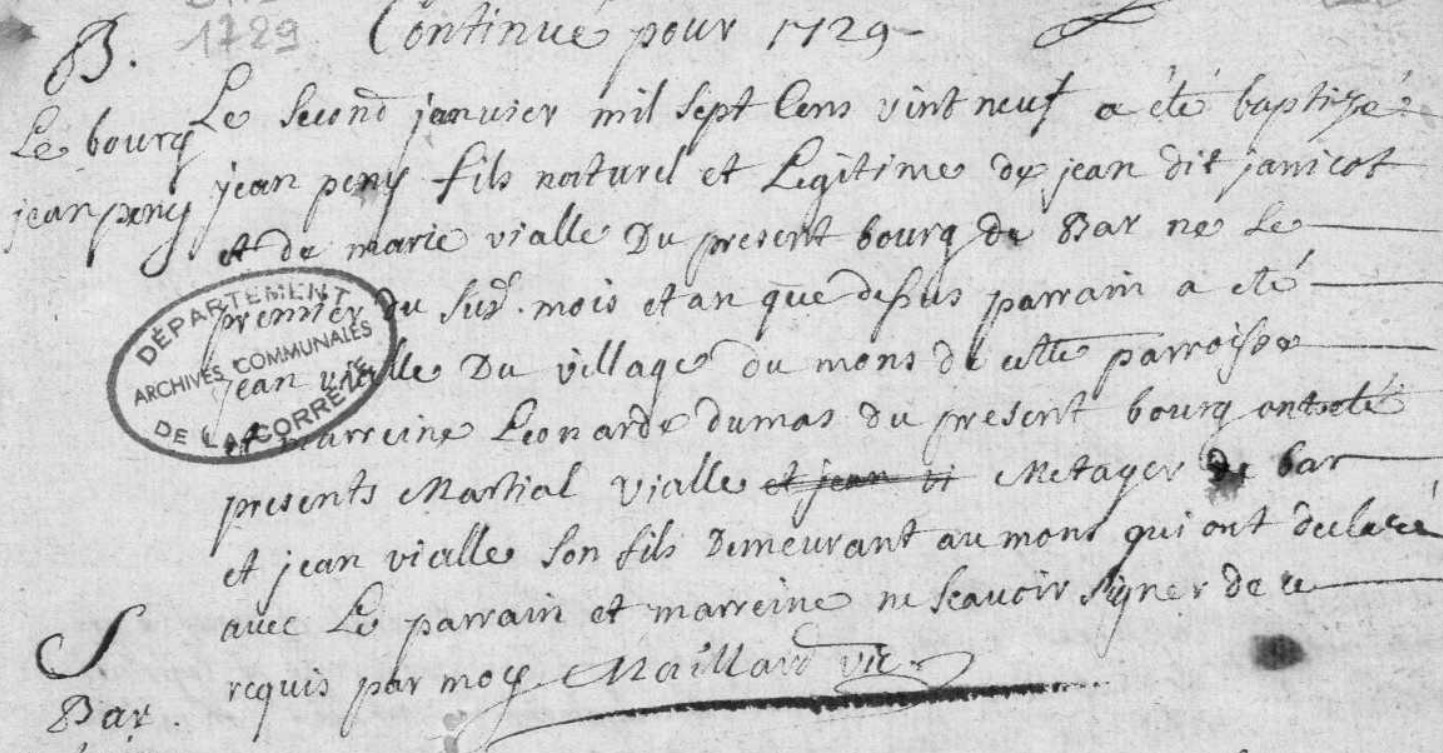 1729
Continué pour 1729
B.
Le bourg
jean peny
Le second janvier mil sept cens vint neuf a été baptizé
jean peny fils naturel et Legitime de jean dit janicot
et de marie vialle Du present bourg de Bar ne Le
premier du susd. mois et an que dessus parrain a eté
jean vialle Du village du mons de cette parroisse
et marreine Leonarde dumas du present bourg ont eté
presents Martial vialle et jean vi Metayer de bar
et jean vialle son fils Demeurant au mons qui ont declaré
avec Le parrain et marreine ne scavoir signer de ce
requis par moy Maillard vic.
S
Bar.
DÉPARTEMENT
ARCHIVES COMMUNALES
DE LA CORRÈZE